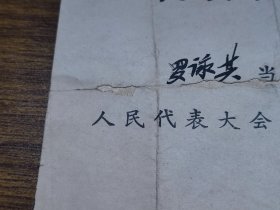 罗咏其当
人民代表大会